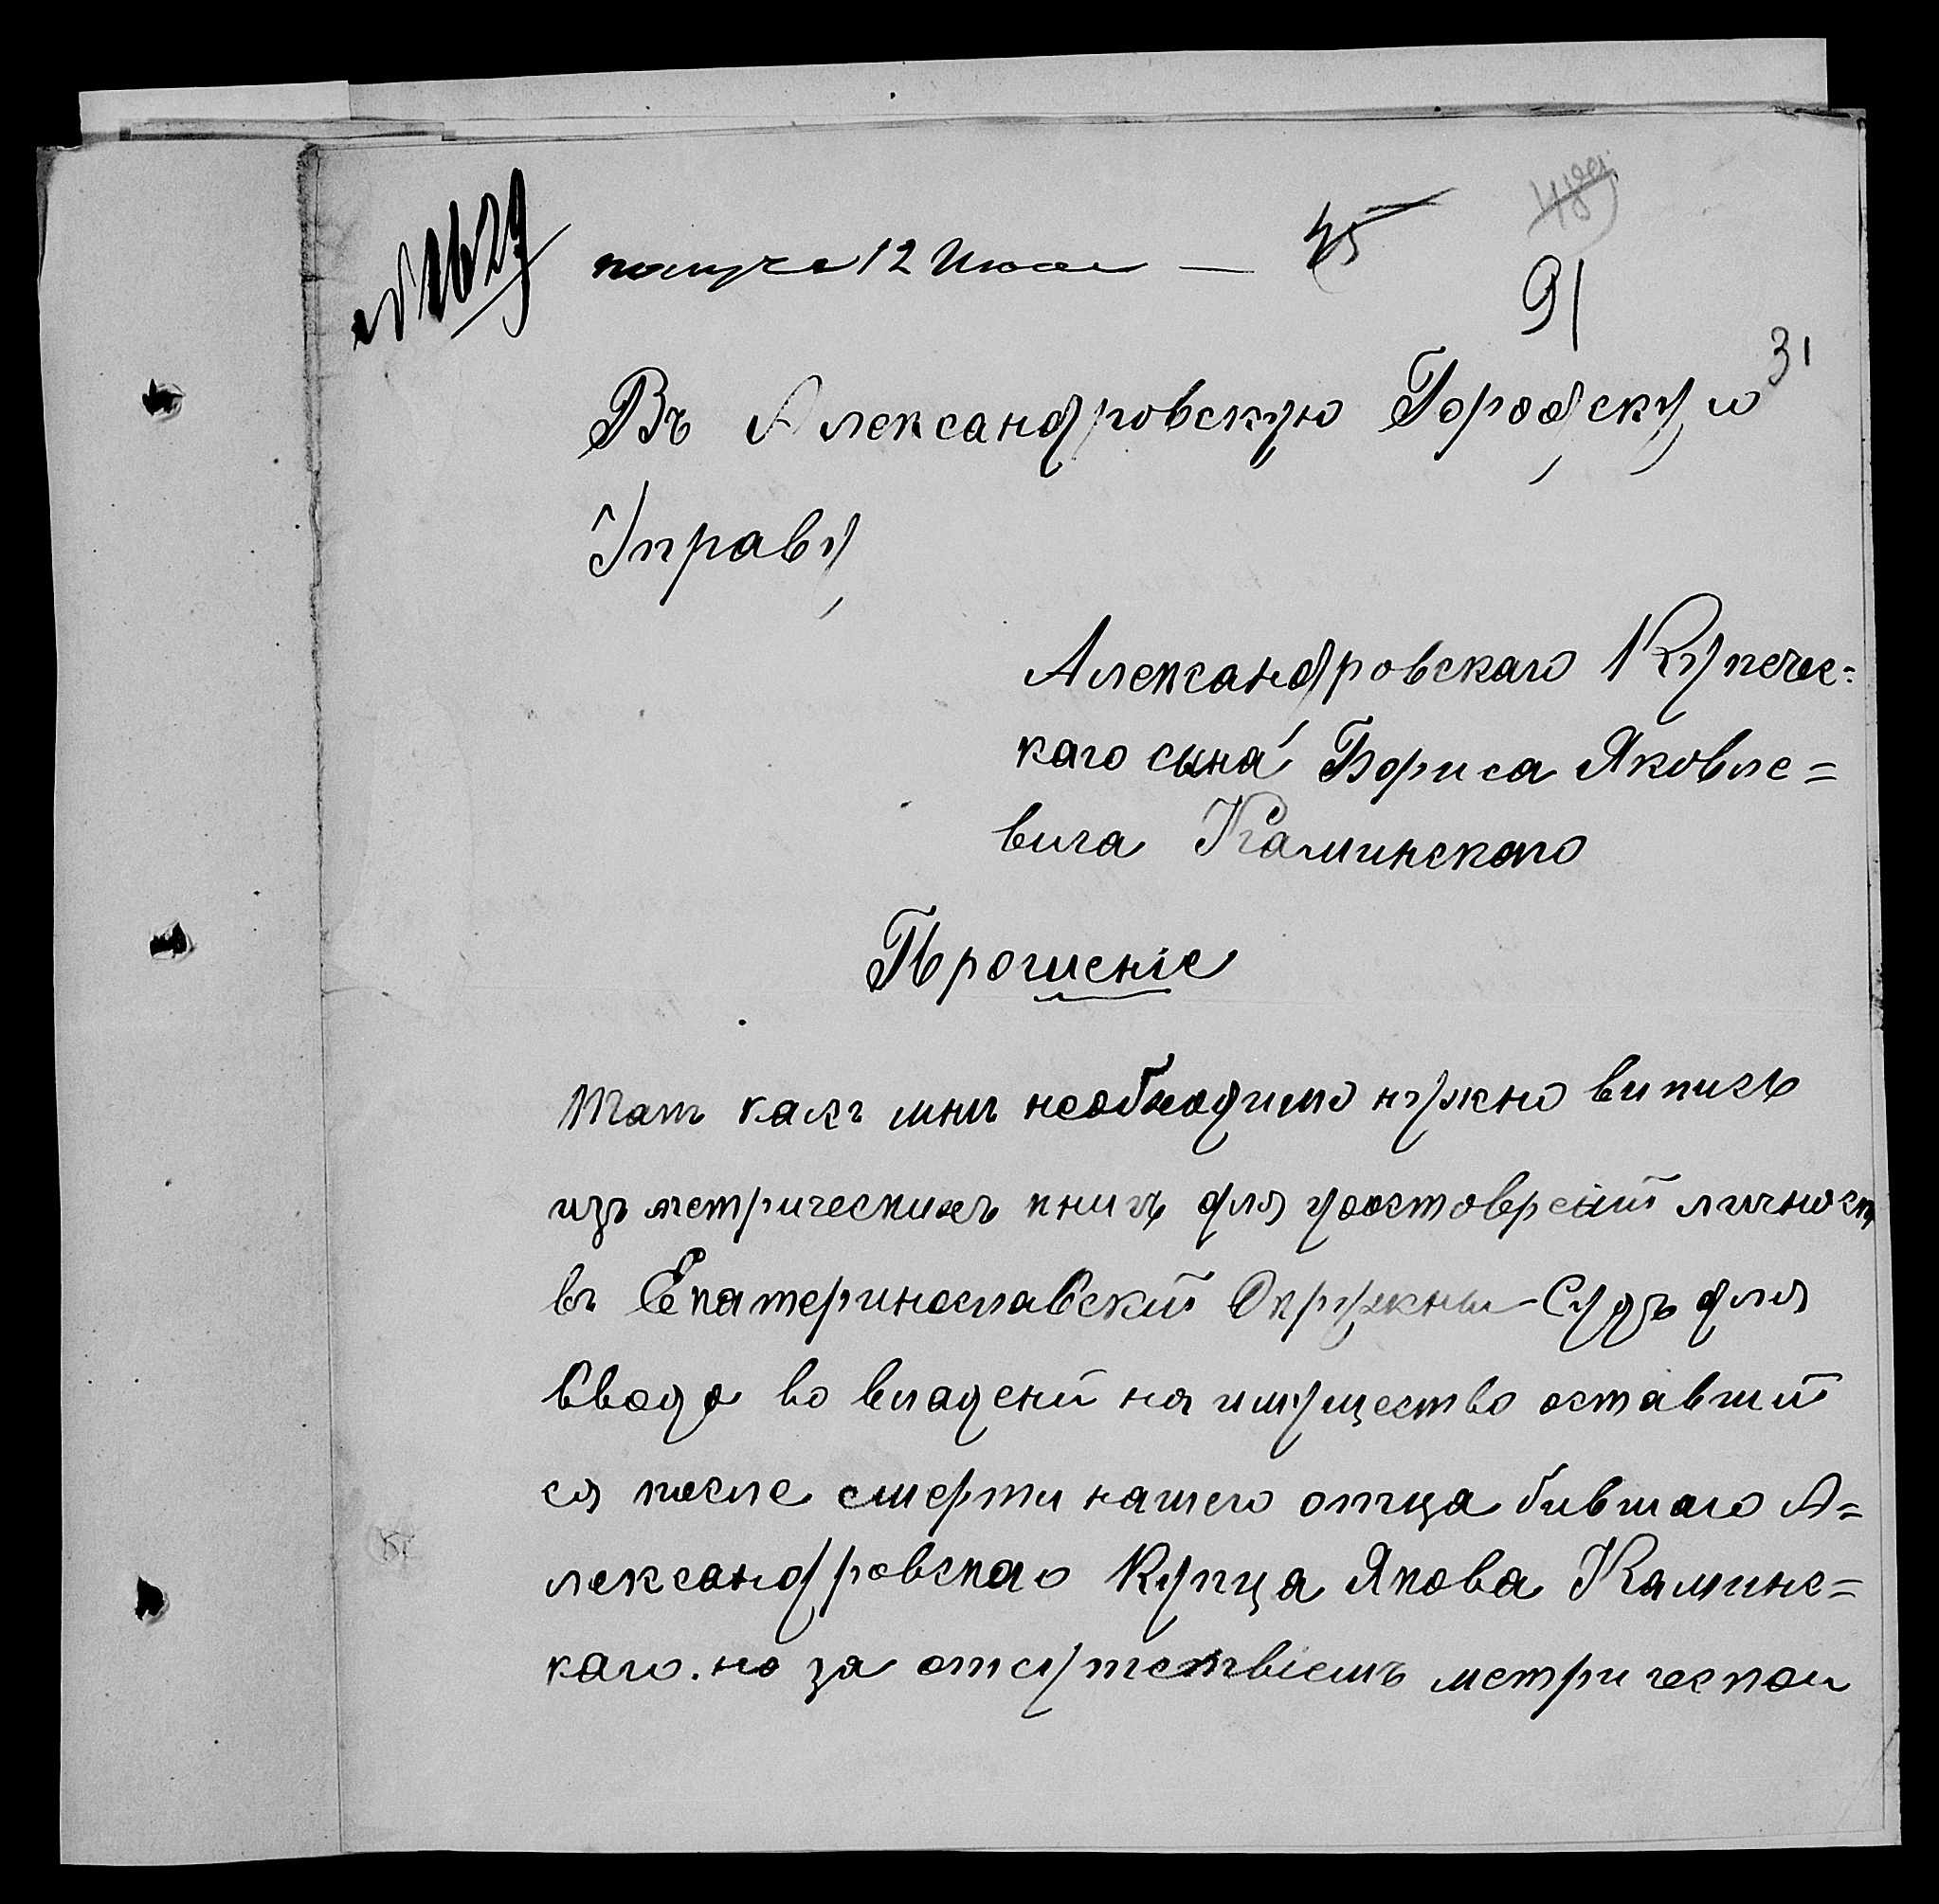 № 1629
получе 12 Июля — 45
91
31
Въ Александровскую Городскую
Управу
Александровскаго Купечес-
каго сына Бориса Яковле=
вича Каминского
Прошеніе
Такъ какъ мнѣ необходимо нужно випись
изъ метрическихъ книгъ для удостоврений личност
въ Екатеринославский Окружни Судъ для
Ввода во владений на имущество оставший
ся после смерти нашего отца бившаго А=
лександровскаго Купца Якова Каминс=
каго. но за отсутствіемъ метрической